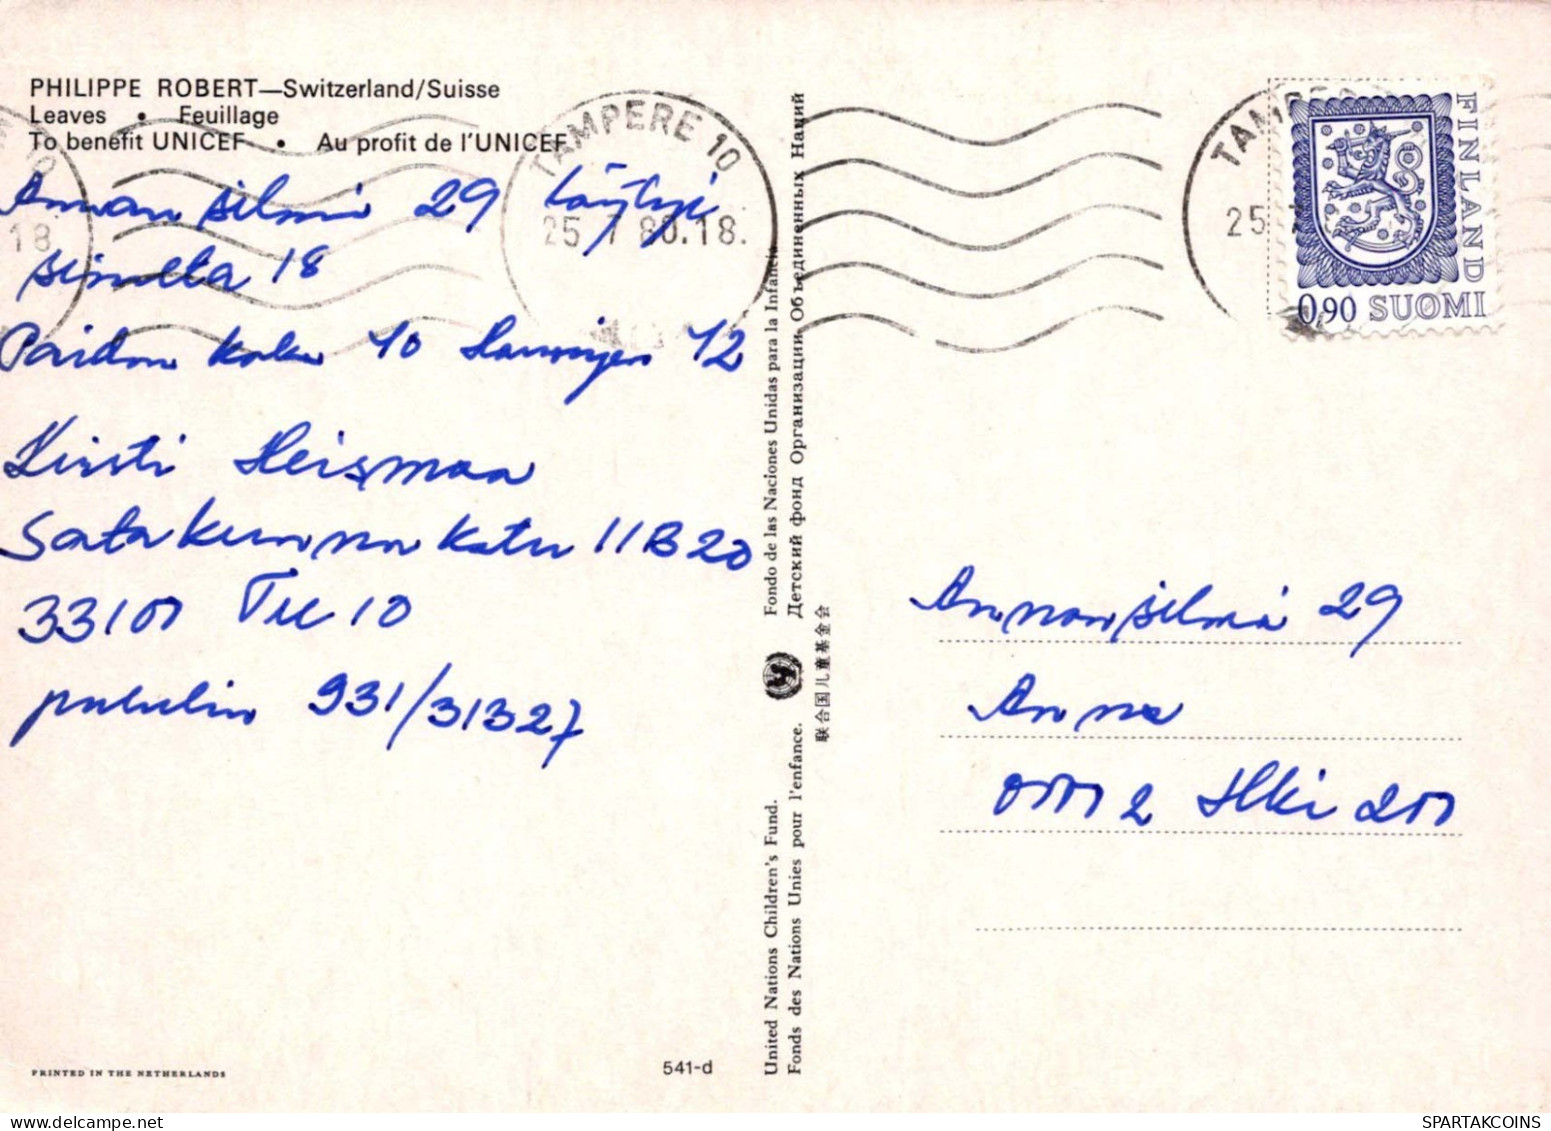 PHILIPPE ROBERT—Switzerland/Suisse
Leaves • Feuillage
To benefit UNICEF • Au profit de l'UNICEF
TAMPERE 10
25.7.80.18.
18
Annan silmä 29 Löytyi
sivulta 18
Paidan koko 40 Hameen 42
Kirsti Heismaa
Satakunnankatu 11 B 20
33100 Tre 10
puhelin 931/31327
PRINTED IN THE NETHERLANDS
541-d
Fondo de las Naciones Unidas para la Infancia
Детский фонд Организации Объединенных Наций
联合国儿童基金会
United Nations Children's Fund.
Fonds des Nations Unies pour l'enfance.
FINLAND
0,90 SUOMI
25
Annan silmä 29
Anna
00002 Hki 200
SPARTAKCOINS